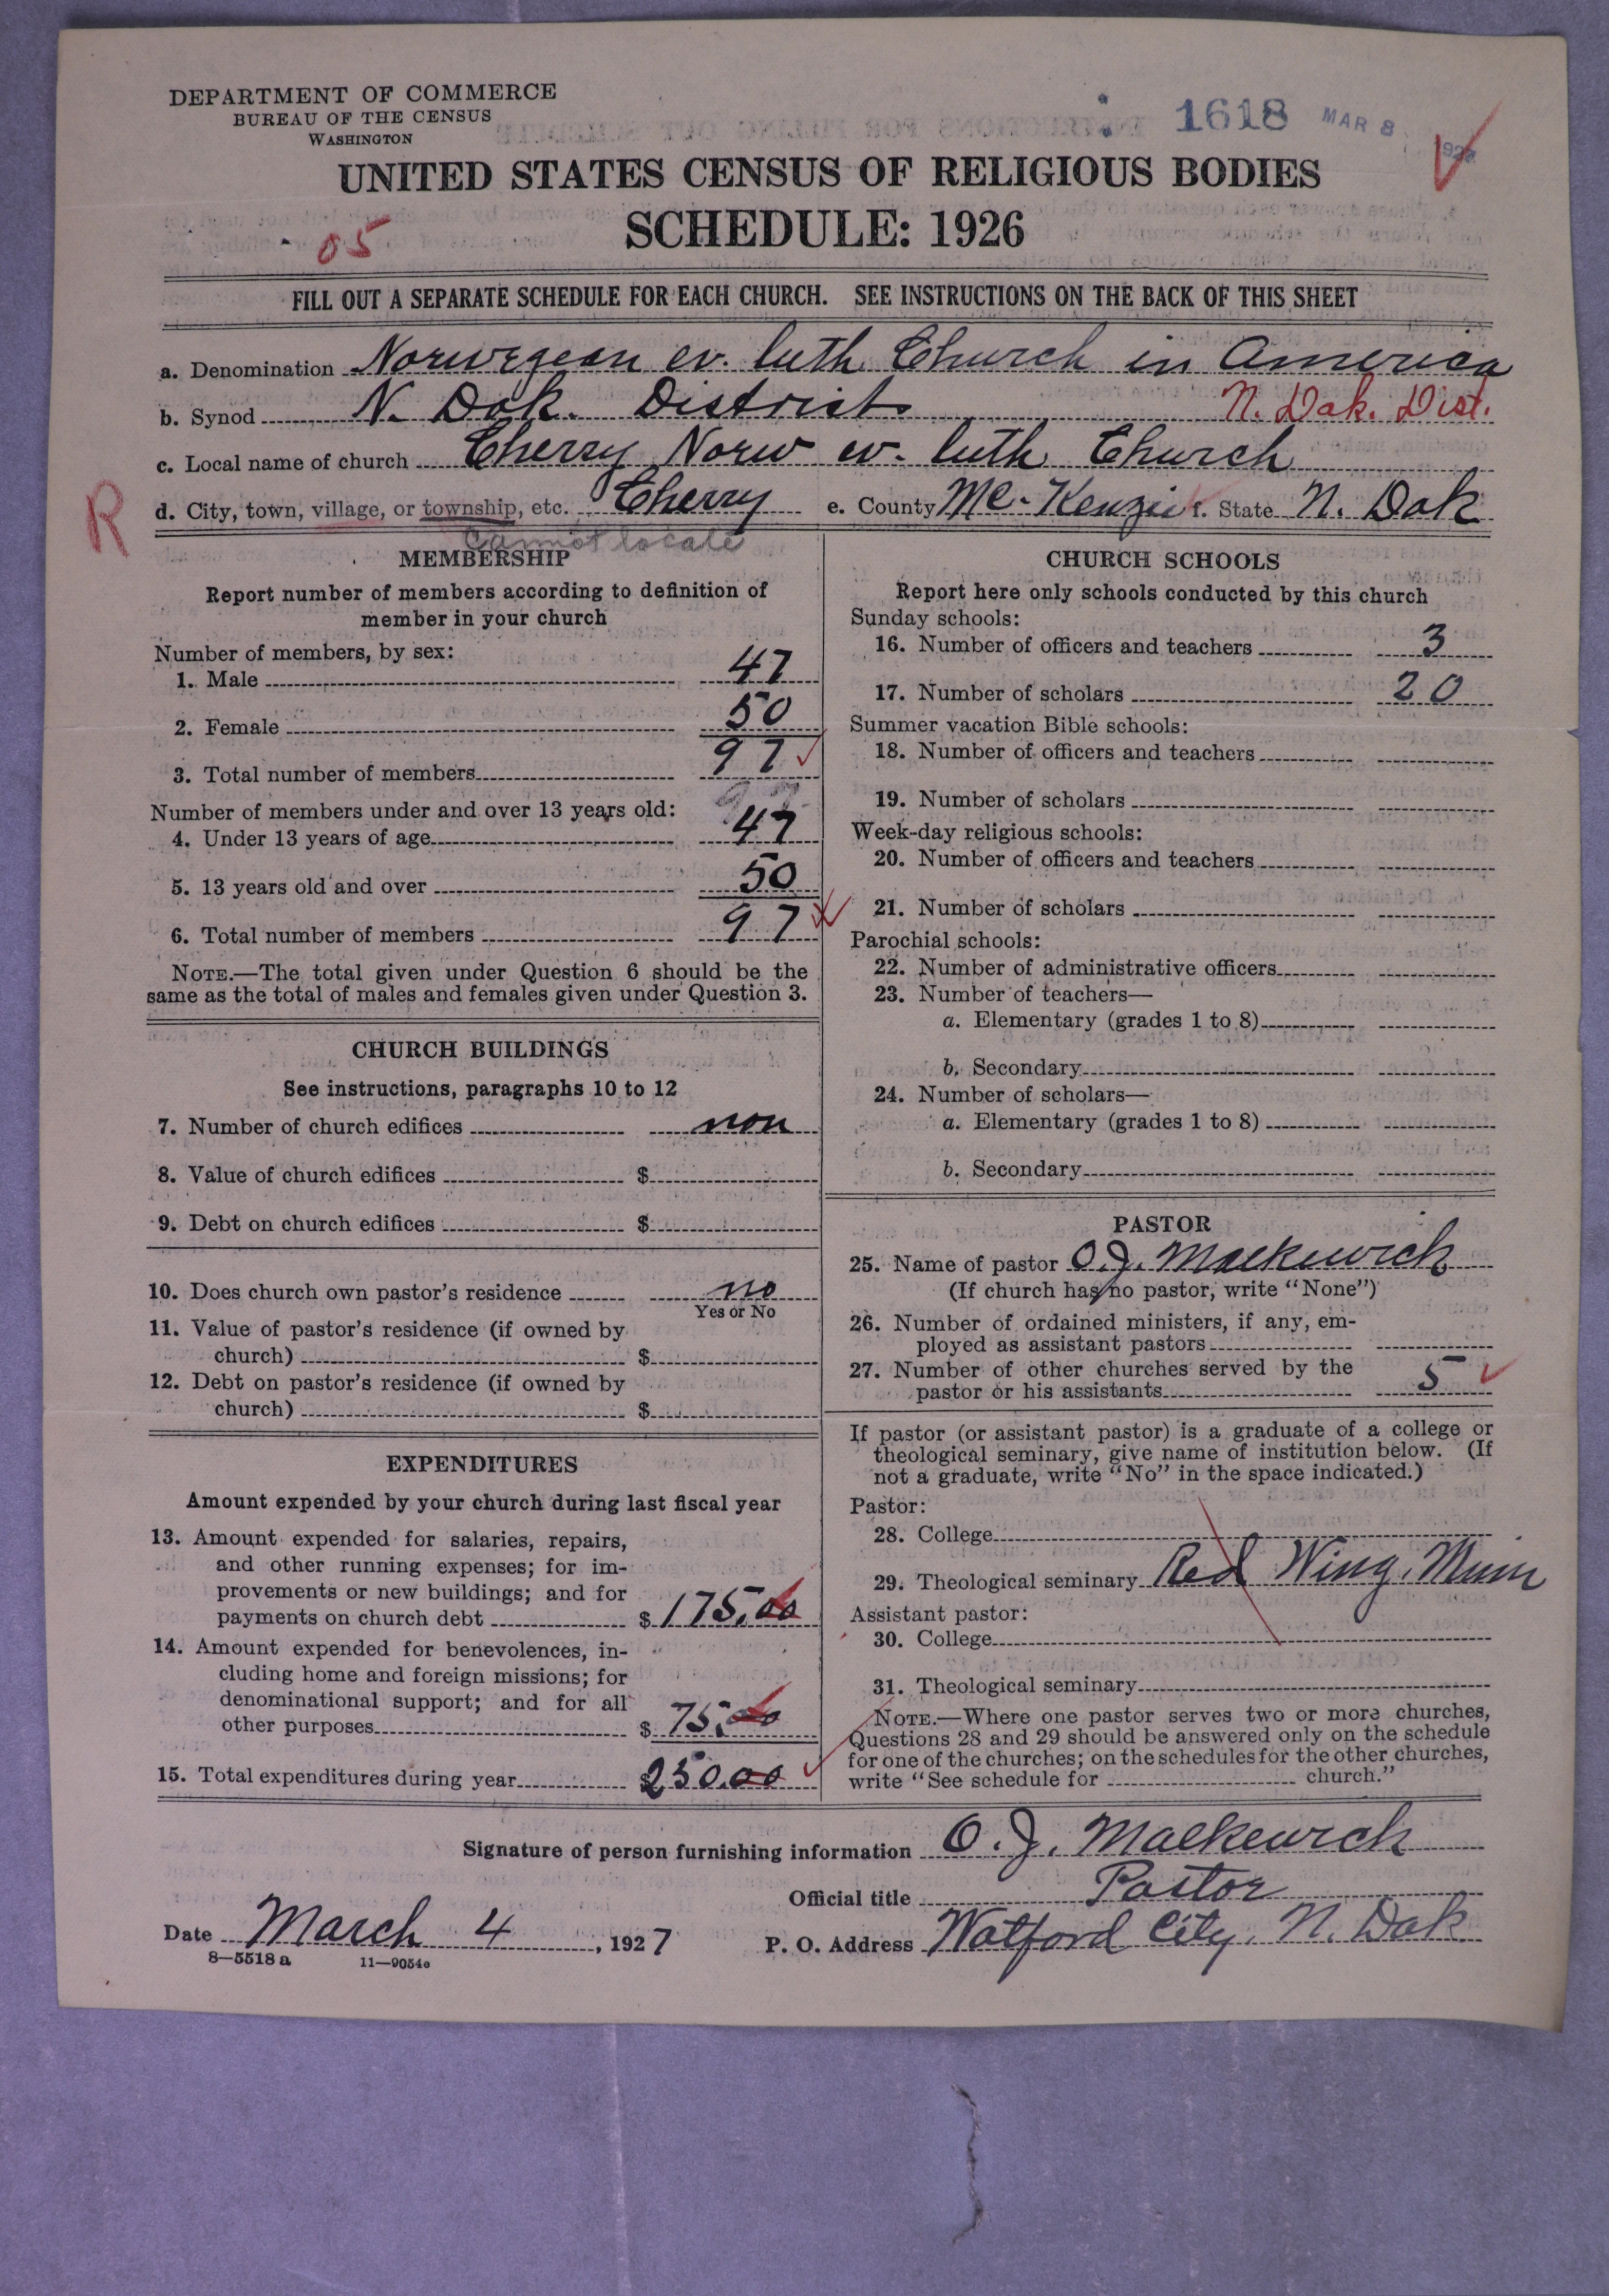 DEPARTMENT OF COMMERCE
BUREAU OF THE CENSUS
WASHINGTON
1618 MAR 8
UNITED STATES CENSUS OF RELIGIOUS BODIES
SCHEDULE: 1926
05
FILL OUT A SEPARATE SCHEDULE FOR EACH CHURCH. SEE INSTRUCTIONS ON THE BACK OF THIS SHEET
a. Denomination Norwegean ev. luth Church in America
b. Synod N. Dak. District N. Dak. Dist.
c. Local name of church Cherry Norw ev. luth Church
R d. City, town, village, or township, etc. Cherry e. County Mc-Kenzie f. State N. Dak
Cannot locate
MEMBERSHIP
Report number of members according to definition of
member in your church
Number of members, by sex:
1. Male 47
2. Female 50
3. Total number of members 97
Number of members under and over 13 years old:
4. Under 13 years of age 47
5. 13 years old and over 50
6. Total number of members 97
NOTE.—The total given under Question 6 should be the
same as the total of males and females given under Question 3.
CHURCH BUILDINGS
See instructions, paragraphs 10 to 12
7. Number of church edifices non
8. Value of church edifices $
9. Debt on church edifices $
10. Does church own pastor's residence no
Yes or No
11. Value of pastor's residence (if owned by
church) $
12. Debt on pastor's residence (if owned by
church) $
EXPENDITURES
Amount expended by your church during last fiscal year
13. Amount expended for salaries, repairs,
and other running expenses; for im-
provements or new buildings; and for
payments on church debt $175.00
14. Amount expended for benevolences, in-
cluding home and foreign missions; for
denominational support; and for all
other purposes $75.00
15. Total expenditures during year $250.00
CHURCH SCHOOLS
Report here only schools conducted by this church
Sunday schools:
16. Number of officers and teachers 3
17. Number of scholars 20
Summer vacation Bible schools:
18. Number of officers and teachers
19. Number of scholars
Week-day religious schools:
20. Number of officers and teachers
21. Number of scholars
Parochial schools:
22. Number of administrative officers
23. Number of teachers—
a. Elementary (grades 1 to 8)
b. Secondary
24. Number of scholars—
a. Elementary (grades 1 to 8)
b. Secondary
PASTOR
25. Name of pastor O.J. Malkewich
(If church has no pastor, write "None")
26. Number of ordained ministers, if any, em-
ployed as assistant pastors
27. Number of other churches served by the
pastor or his assistants 5
If pastor (or assistant pastor) is a graduate of a college or
theological seminary, give name of institution below. (If
not a graduate, write "No" in the space indicated.)
Pastor:
28. College
29. Theological seminary Red Wing, Minn
Assistant pastor:
30. College
31. Theological seminary
NOTE.—Where one pastor serves two or more churches,
Questions 28 and 29 should be answered only on the schedule
for one of the churches; on the schedules for the other churches,
write "See schedule for church."
Signature of person furnishing information O. J. Malkewich
Official title Pastor
Date March 4, 1927 P. O. Address Watford City, N. Dak
8—5518 a 11—9054c